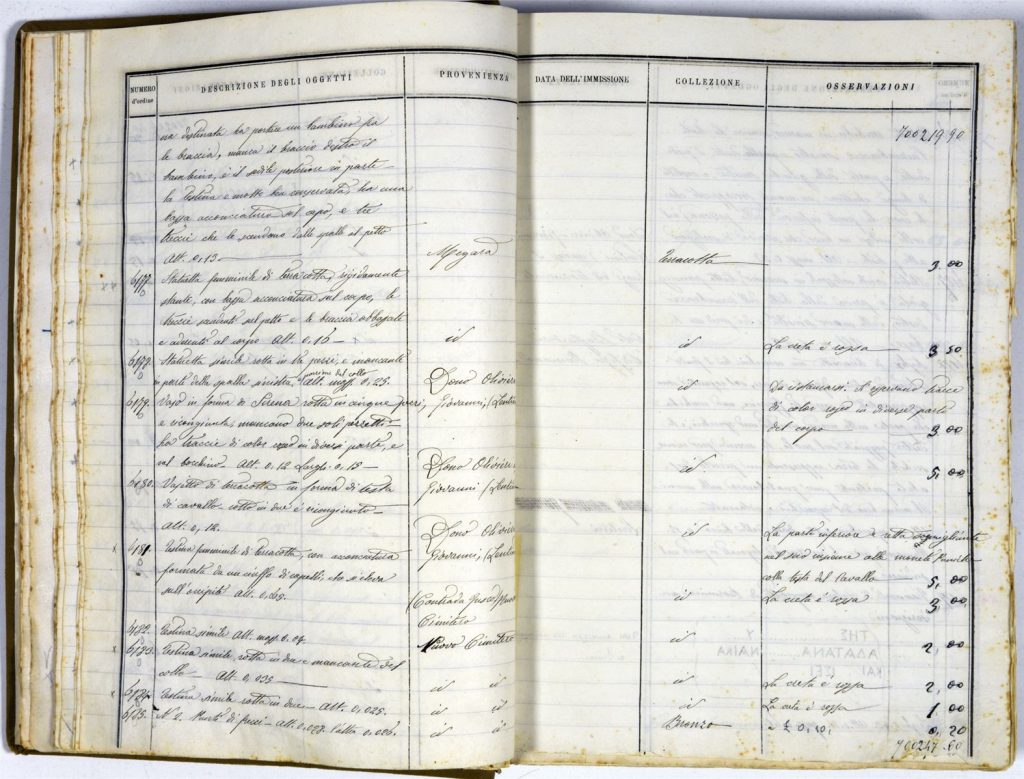 NUMERO d'ordine
DESCRIZIONE DEGLI OGGETTI
PROVENIENZA
DATA DELL'IMMISSIONE
COLLEZIONE
OSSERVAZIONI
700219 90
na destinata ha portice un bambino fra
le braccia, manca il braccio destro il
bambino, e il sedile posteriore in parte
la testina è molto ben conservata, ha una
bassa acconciatura sul capo, e tre
treccie che le scendono dalle spalle al petto
Alt. 0,13. Megara Terracotta 3,00
6177. Statuetta femminile di terracotta, rigidamente
stante, con bassa acconciatura sul corpo, le
treccie sul petto e le braccia
e aderenti al corpo Alt. 0,16 id id La creta è rossa 3,50
6178. Statuetta simile rotta in tre pezzi, e mancante
in parte della spalla sinistra, porzione del collo Alt. mass. 0,25. Dono Olivieri id
6179. Vaso in forma di Sirena rotta in cinque pezzi, Giovanni, (Lentini di color rosso in diverse parti
e ricongiunta, mancano due soli pezzetti del corpo 3,00
ha traccie di color rosso in diverse parti, e
sul bocchino. Alt. 0,12 Lungh. 0,13 Dono Olivieri id. 5,00
6180. Vasetto di terracotta in forma di testa Giovanni (Lentini
di cavallo rotto in due e ricongiunto
Alt. 0,12. Dono Olivieri id La parte inferiore è
6181. Testina femminile di terracotta, con acconciatura Giovanni, (Lentini nel suo insieme alle monete Puniche
formata da un ciuffo di capelli, che si eleva colla testa del Cavallo 5,00
sull'occipite Alt. 0,065. (Contrada id La creta è rossa 3,00
Cimitero
6182. Testina simile Alt. mass. 0,07. Nuovo Cimitero id 2,00
6183. Testina simile, rotta in due e mancante del
collo Alt. 0,035 id id id La creta è rossa 2,00
6184. Testina simile rotta in due Alt. 0,025. id id id La creta è rossa 1,00
6185. N. 2. Punte di frecci Alt. 0,027 l'altra 0,026. id id Bronzo £ 0,10. 0,20
700247 60